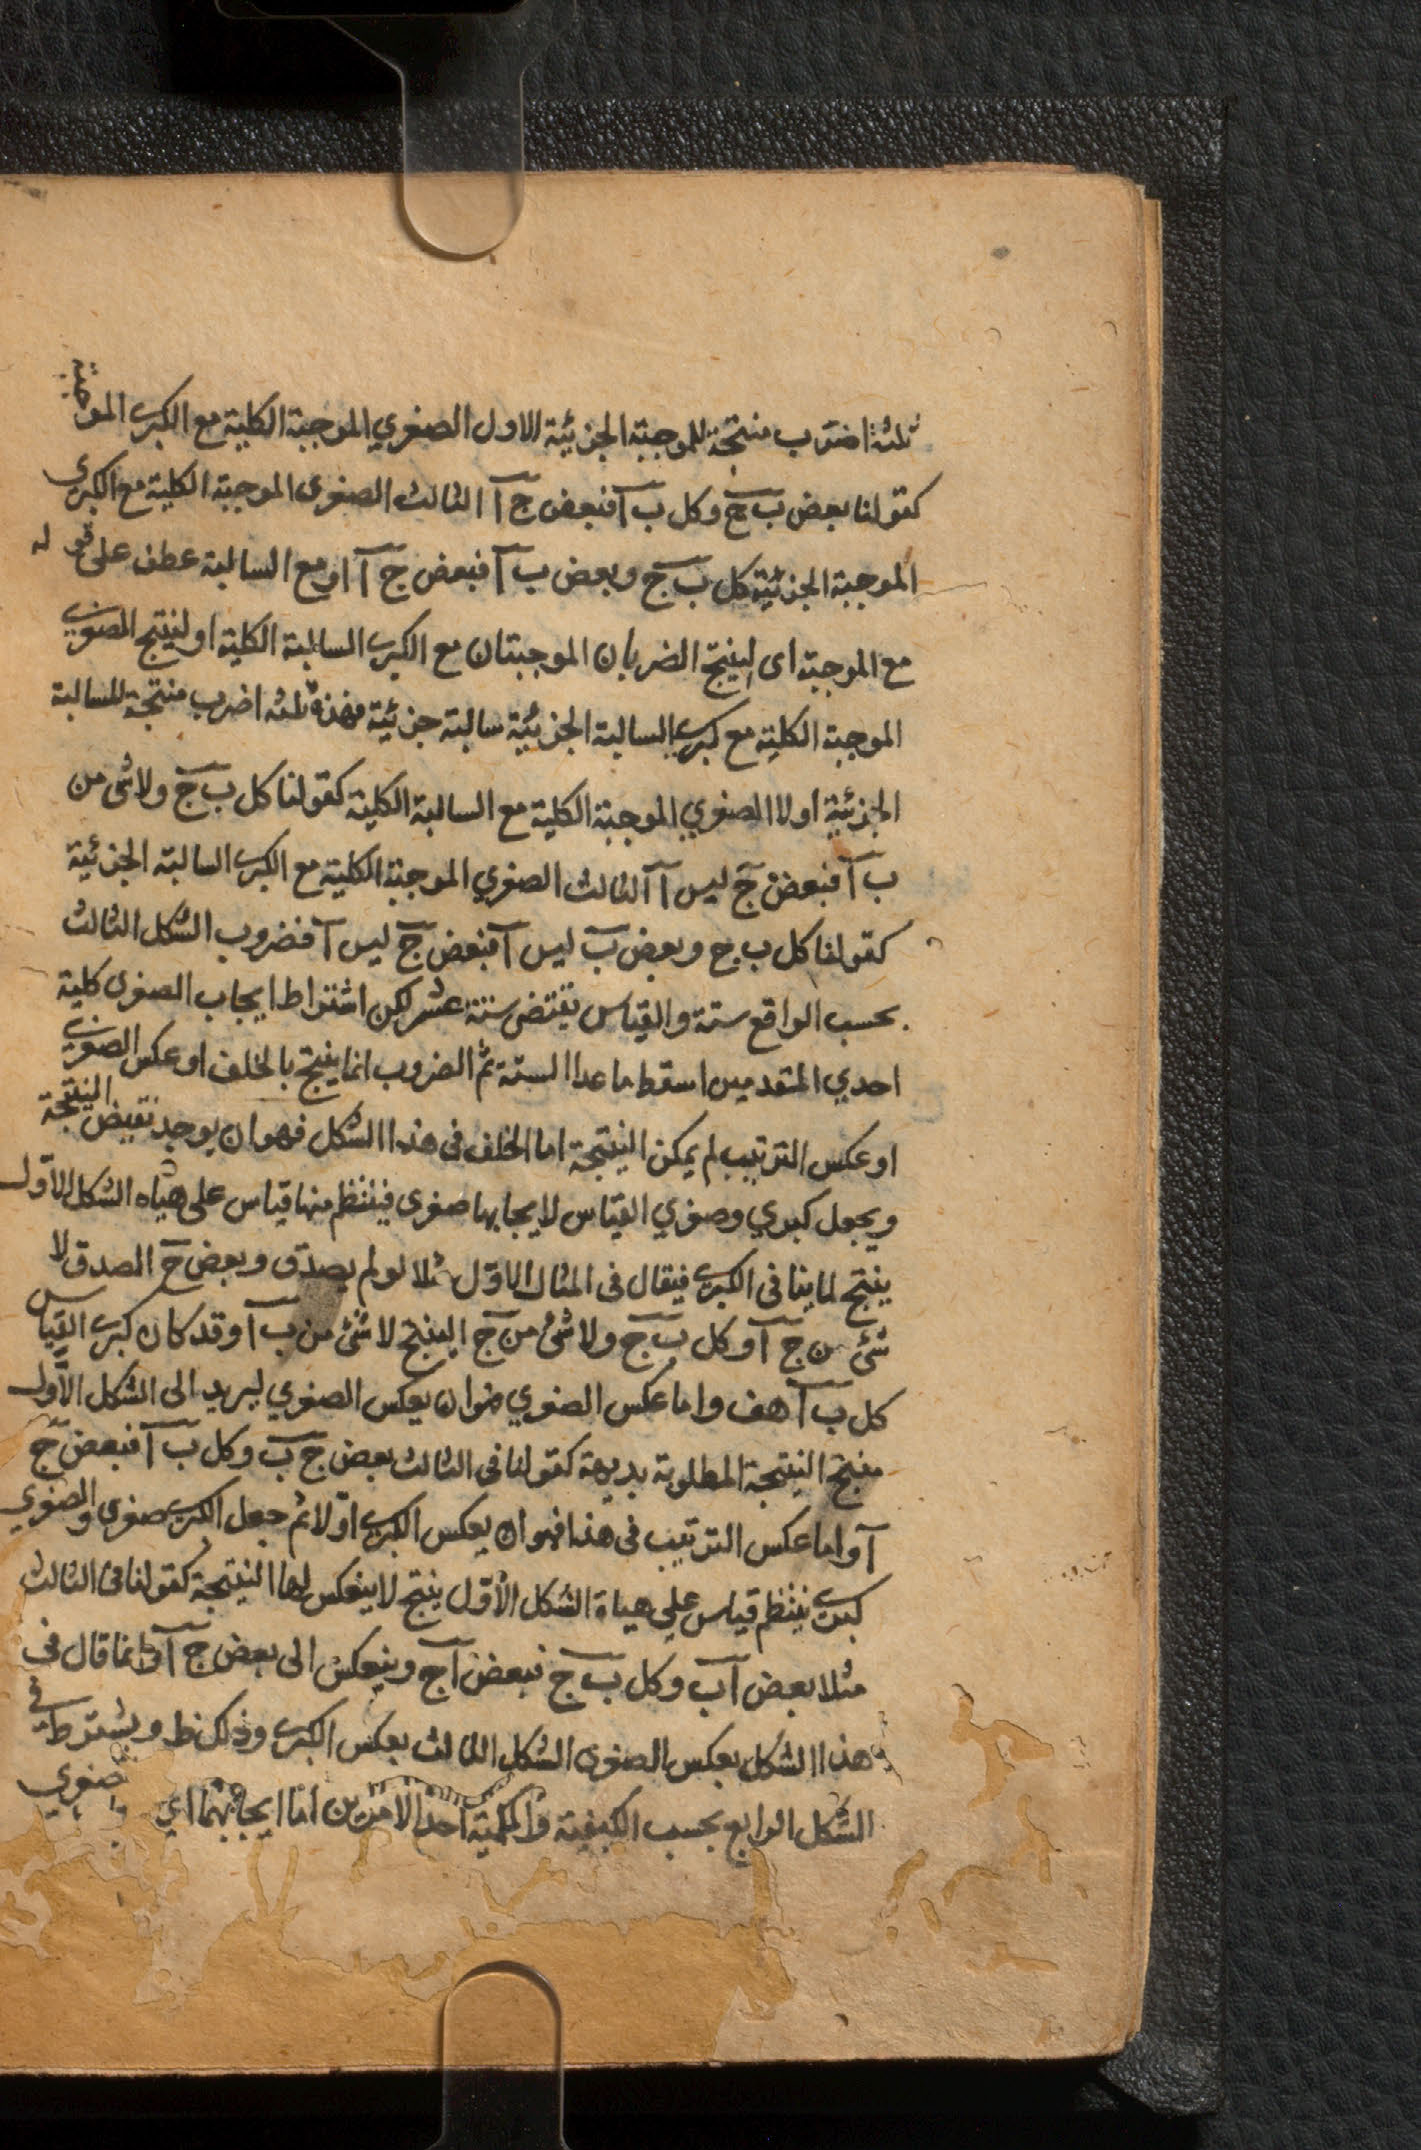 ثلثة اضرب منتجة للموجبة الجزئية الاول الصغري الموجبة الكلية مع الكبرى الموجبة
كقولنا بعض ب ج وكل ب آ فبعض ج آ الثالث الصغرى الموجبة الكلية مع الكبرى
الموجبة الجزئية كل ب ج وبعض ب آ فبعض ج آ او مع السالبة عطف على قوله
مع الموجبة اى لينتج الضربان الموجبتان مع الكبرى السالبة الكلية او لينتج الصغرى
الموجبة الكلية مع كبرى السالبة الجزئية سالبة جزئية فهذه ثلثه اضرب منتجة للسالبة
الجزئية اولا الصغري الموجبة الكلية مع السالبة الكلية كقولنا كل ب ج ولا شى من
ب آ فبعض ج ليس آ الثالث الصغري الموجبة الكلية مع الكبرى السالبة الجزئية
كقولنا كل ب ج وبعض ب ليس آ فبعض ج ليس آ فضروب الشكل الثالث
بحسب الواقع ستة والقياس يقتضى ستة عشر لكن اشتراط ايجاب الصغرى كلية
احدي المتقدمين اسقط ما عدا الستة ثم الضروب انما ينتج بالخلف او عكس الصغرى
او عكس الترتيب لم يمكن النتيجة اما الخلف فى هذا الشكل فهو ان يوجد نقيض النتيجة
ويجعل كبري وصغري القياس لايجابها صغرى فينتظم منها قياس على هياه الشكل الاول
ينتج لما ينافى الكبرى فيقال فى المثال الاول مثلا لو لم يصدق وبعض ج الصدق لا
شئ من ج آ وكل ب ج ولا شئ من ج ا لينتج لا شئ من ب آ وقد كان كبرى القياس
كل ب آ هف واما عكس الصغري فهو ان يعكس الصغري ليريد الى الشكل الاول
منتج النتيجة المطلوبة بديهة كقولنا فى الثالث بعض ج ب وكل ب آ فبعض ج
آ واما عكس الترتيب فى هذا فهو ان يعكس الكبرى اولا ثم جعل الكبرى صغرى والصغري
كبرى ينتظم قياس على هياة الشكل الاول ينتج لا ينعكس لها النتيجة كقولنا فى الثالث
مثلا بعض آ ب وكل ب ج فبعض آ ج وينعكس الى بعض ج آ وانما قال فى
هذا الشكل بعكس الصغرى الشكل الثالث بعكس الكبرى وذلك ظ ويشترط في
الشكل الرابع بحسب الكيفية والكمية احد الامرين اما ايجابهما اي صغري